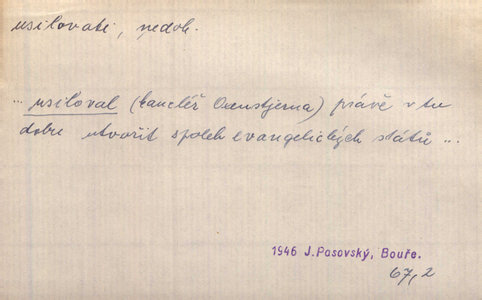 usilovati, nedok.
... usiloval (kancléř Oxenstjerna) právě v tu
dobu utvořit spolek evangelických států ...
1946 J.Pasovský, Bouře.
67,2